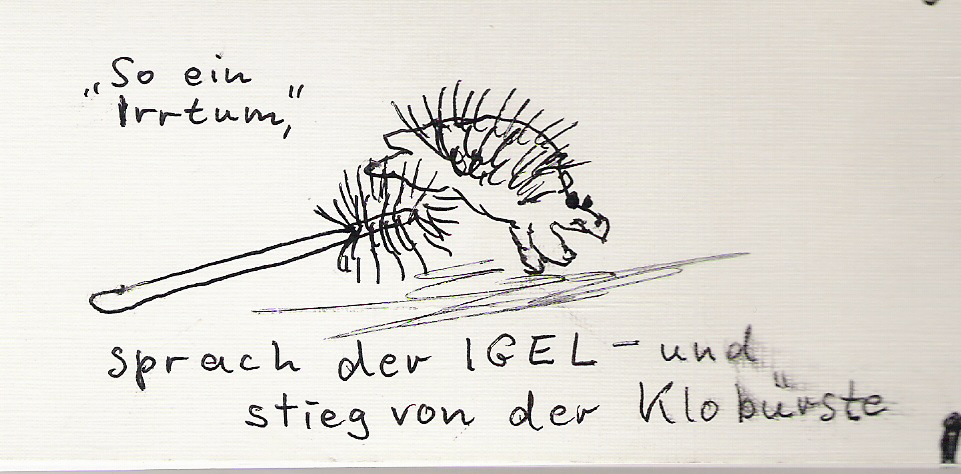 „So ein
Irrtum,"
sprach der IGEL - und
stieg von der Klobürste